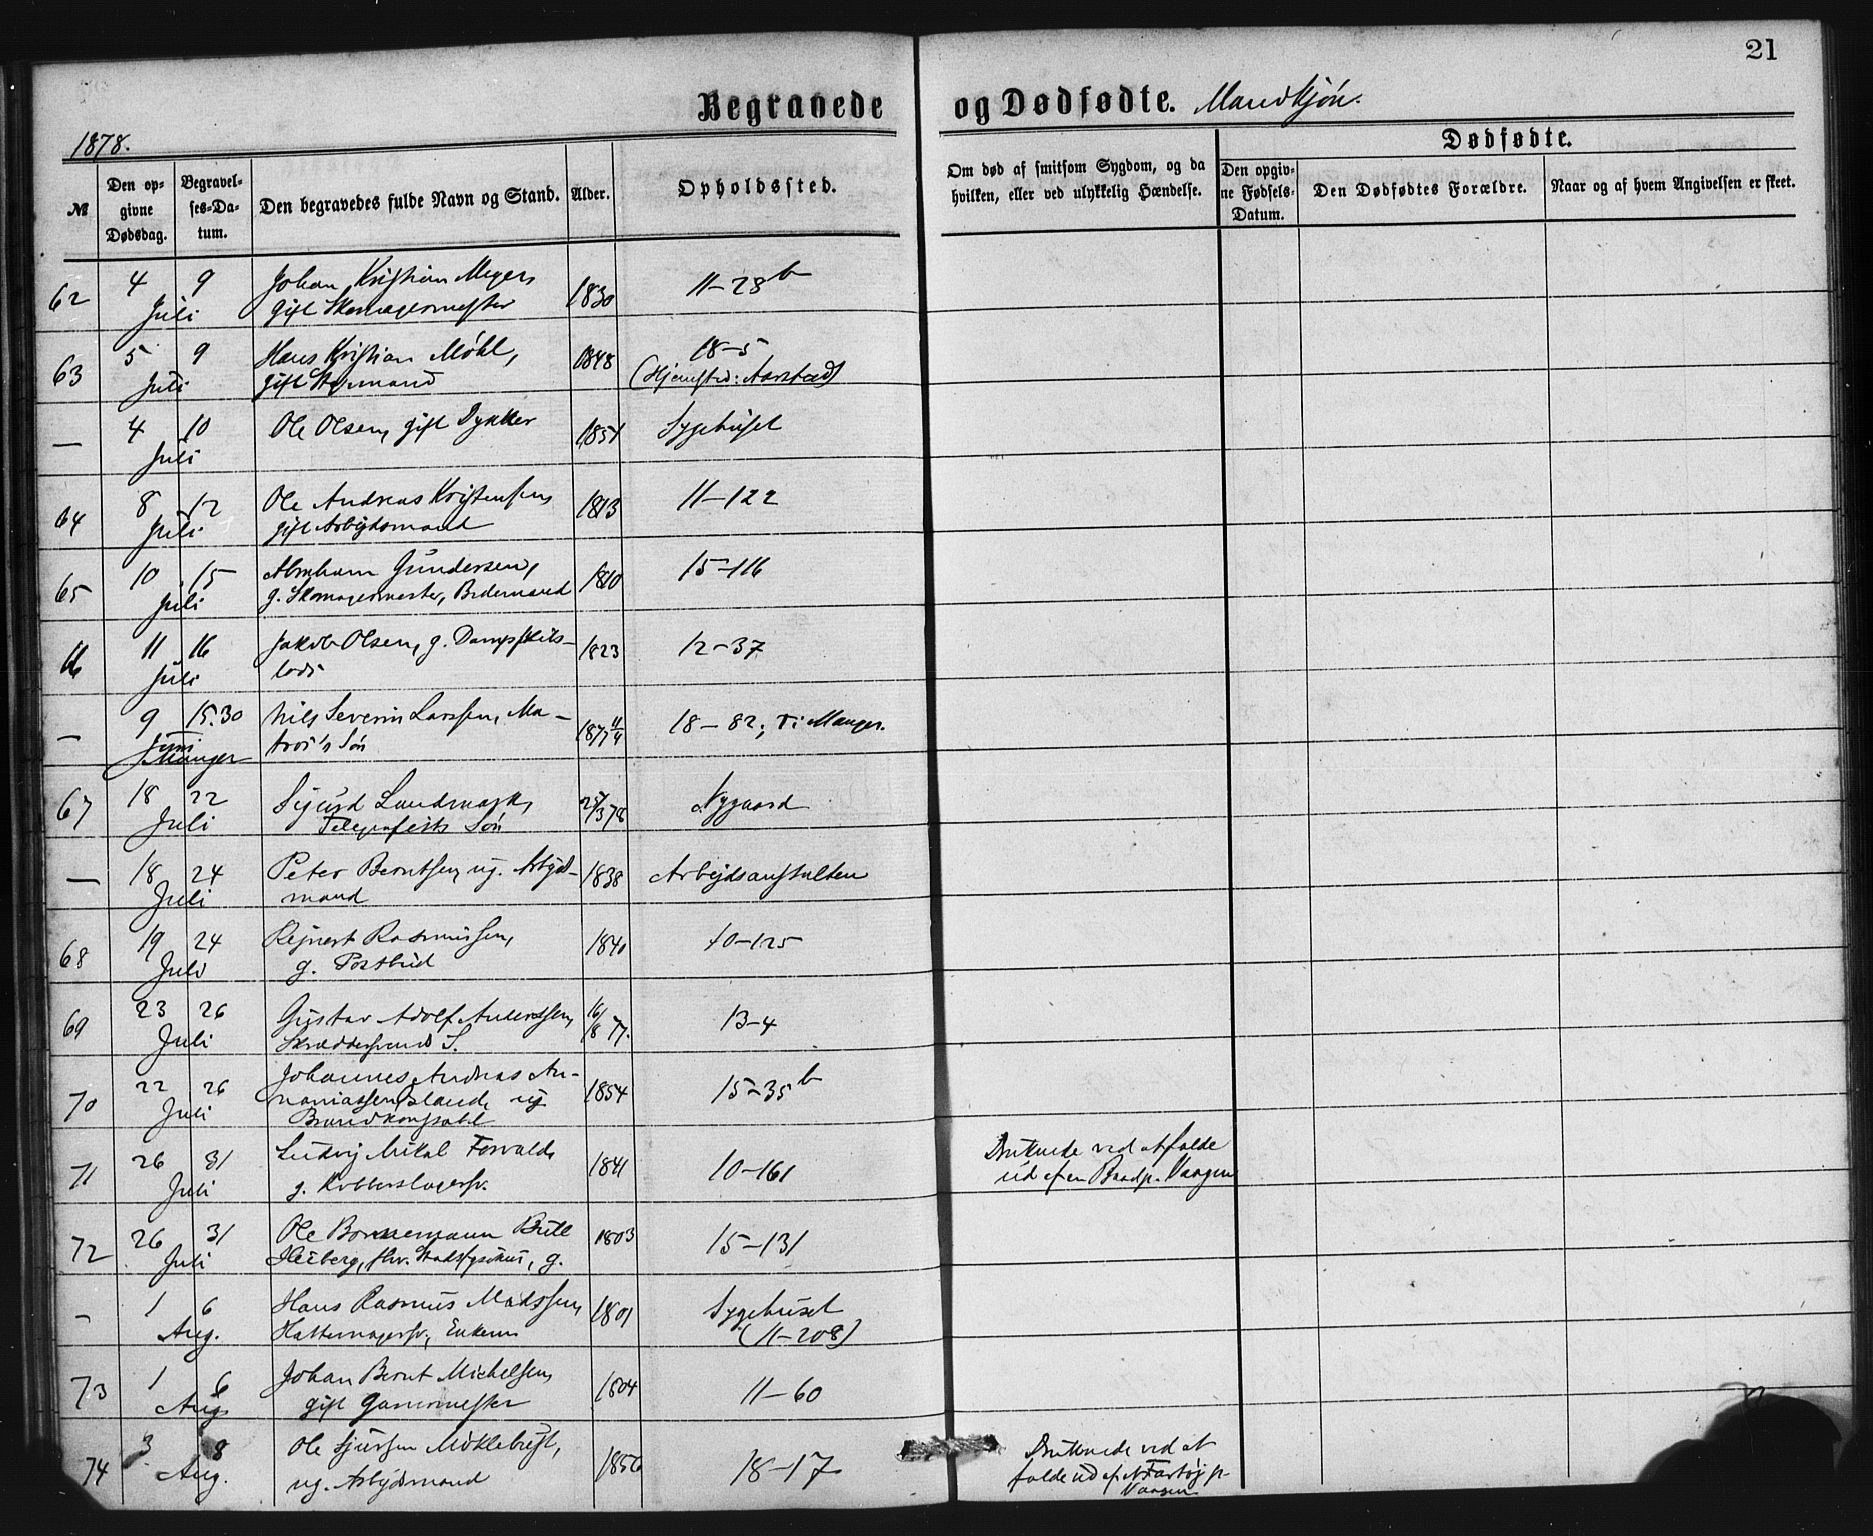 21
Begravede og Dødfødte. Mandkjøn.
1878.
Dødfødte.
№
Den opgivne Dødsdag.
Begravelses-Datum.
Den begravedes fulde Navn og Stand.
Alder.
Opholdssted.
Om død af smitsom Sygdom, og da
hvilken, eller ved ulykkelig Hændelse.
Den opgivne Fødsels-Datum.
Den Dødfødtes Forældre.
Naar og af hvem Angivelsen er skeet.
62 4 9 Johan Kristian Meyer, 1830 11-28b
Juli gift Skomagermester
63 5 9 Hans Kristian Møhl, 1848 18-5
Juli gift Styrmand (Hjemsted: Aarstad)
— 4 10 Ole Olsen, gift Dykker 1851 Sygehuset
Juli
64 8 12 Ole Andreas Kristensen, 1813 11-122
Juli gift Arbejdsmand
65 10 15 Abraham Gundersen, 1810 15-116
Juli g. Skomagermester, Bedemand
66 11 16 Jakob Olsen, g. Dampskibs- 1823 12-37
Juli lods
— 9 15.30 Nils Severin Larssen, Ma- 1877 11/4 18-82; Manger.
Juni Manger tros's Søn
67 18 22 Sigurd Landmark, 25/3 78 Nygaard
Juli Telegrafists Søn
— 18 24 Peter Berntsen, ug. Arbejds- 1838 Arbejdsanstalten
Juli mand
68 19 24 Rejnert Rasmussen, 1840 10-125
Juli g. Postbud
69 23 26 Gustav Adolf Anderssen, 16/8 77. 13-4
Juli Skræddersvends S.
70 22 26 Johannes Andreas An- 1854 15-35b
Juli naniassen ug
Brandkonstabel
71 26 31 Ludvig Mikal 1841 10-161 Druknede ved at falde
Juli g. Kobberslagersv. ud af en Baad p. Vaagen
72 26 31 Ole Bornemann Bull 1803 15-131
Juli Heiberg, fhv. Stadsfysikus, g.
— 1 6 Hans Rasmus Madssen, 1801 Sygehuset
Aug. Hattemagersv., Enkem (11-208)
73 1 6 Johan Bernt Michelsen, 1804 11-60
Aug gift Garvermester
74 3 8 Ole Sjursen Møklebust, 1856 18-17 Druknede ved at
Aug. ug. Arbejdsmand falde ud af et Fartøj p.
Vaagen